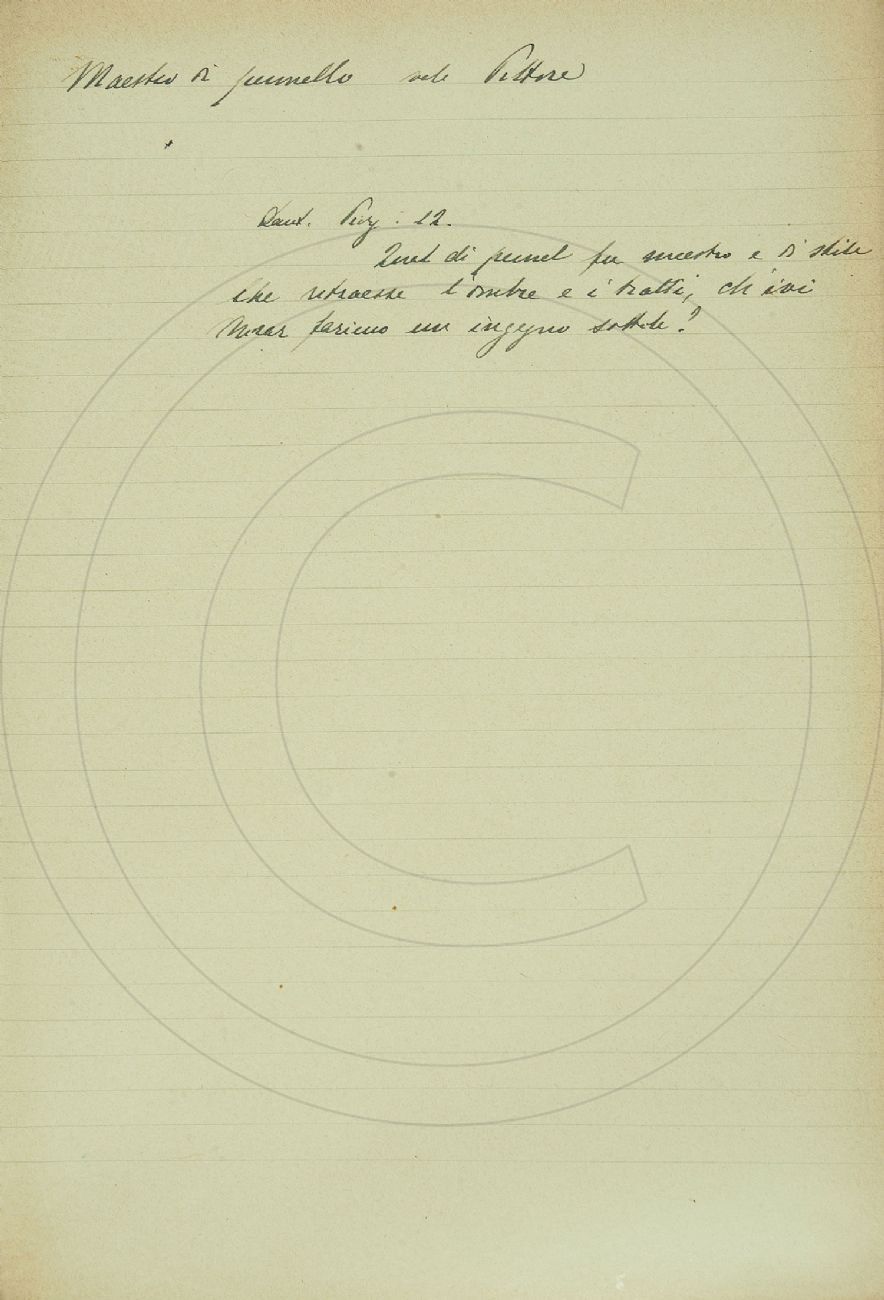 Maestro di pennello vale Pittore
Dant. Purg. 12.
Qual di pennel fu maestro e di stile
Che ritraesse l'ombre e i tratti, ch'ivi
Mirar farieno un ingegno sottile?